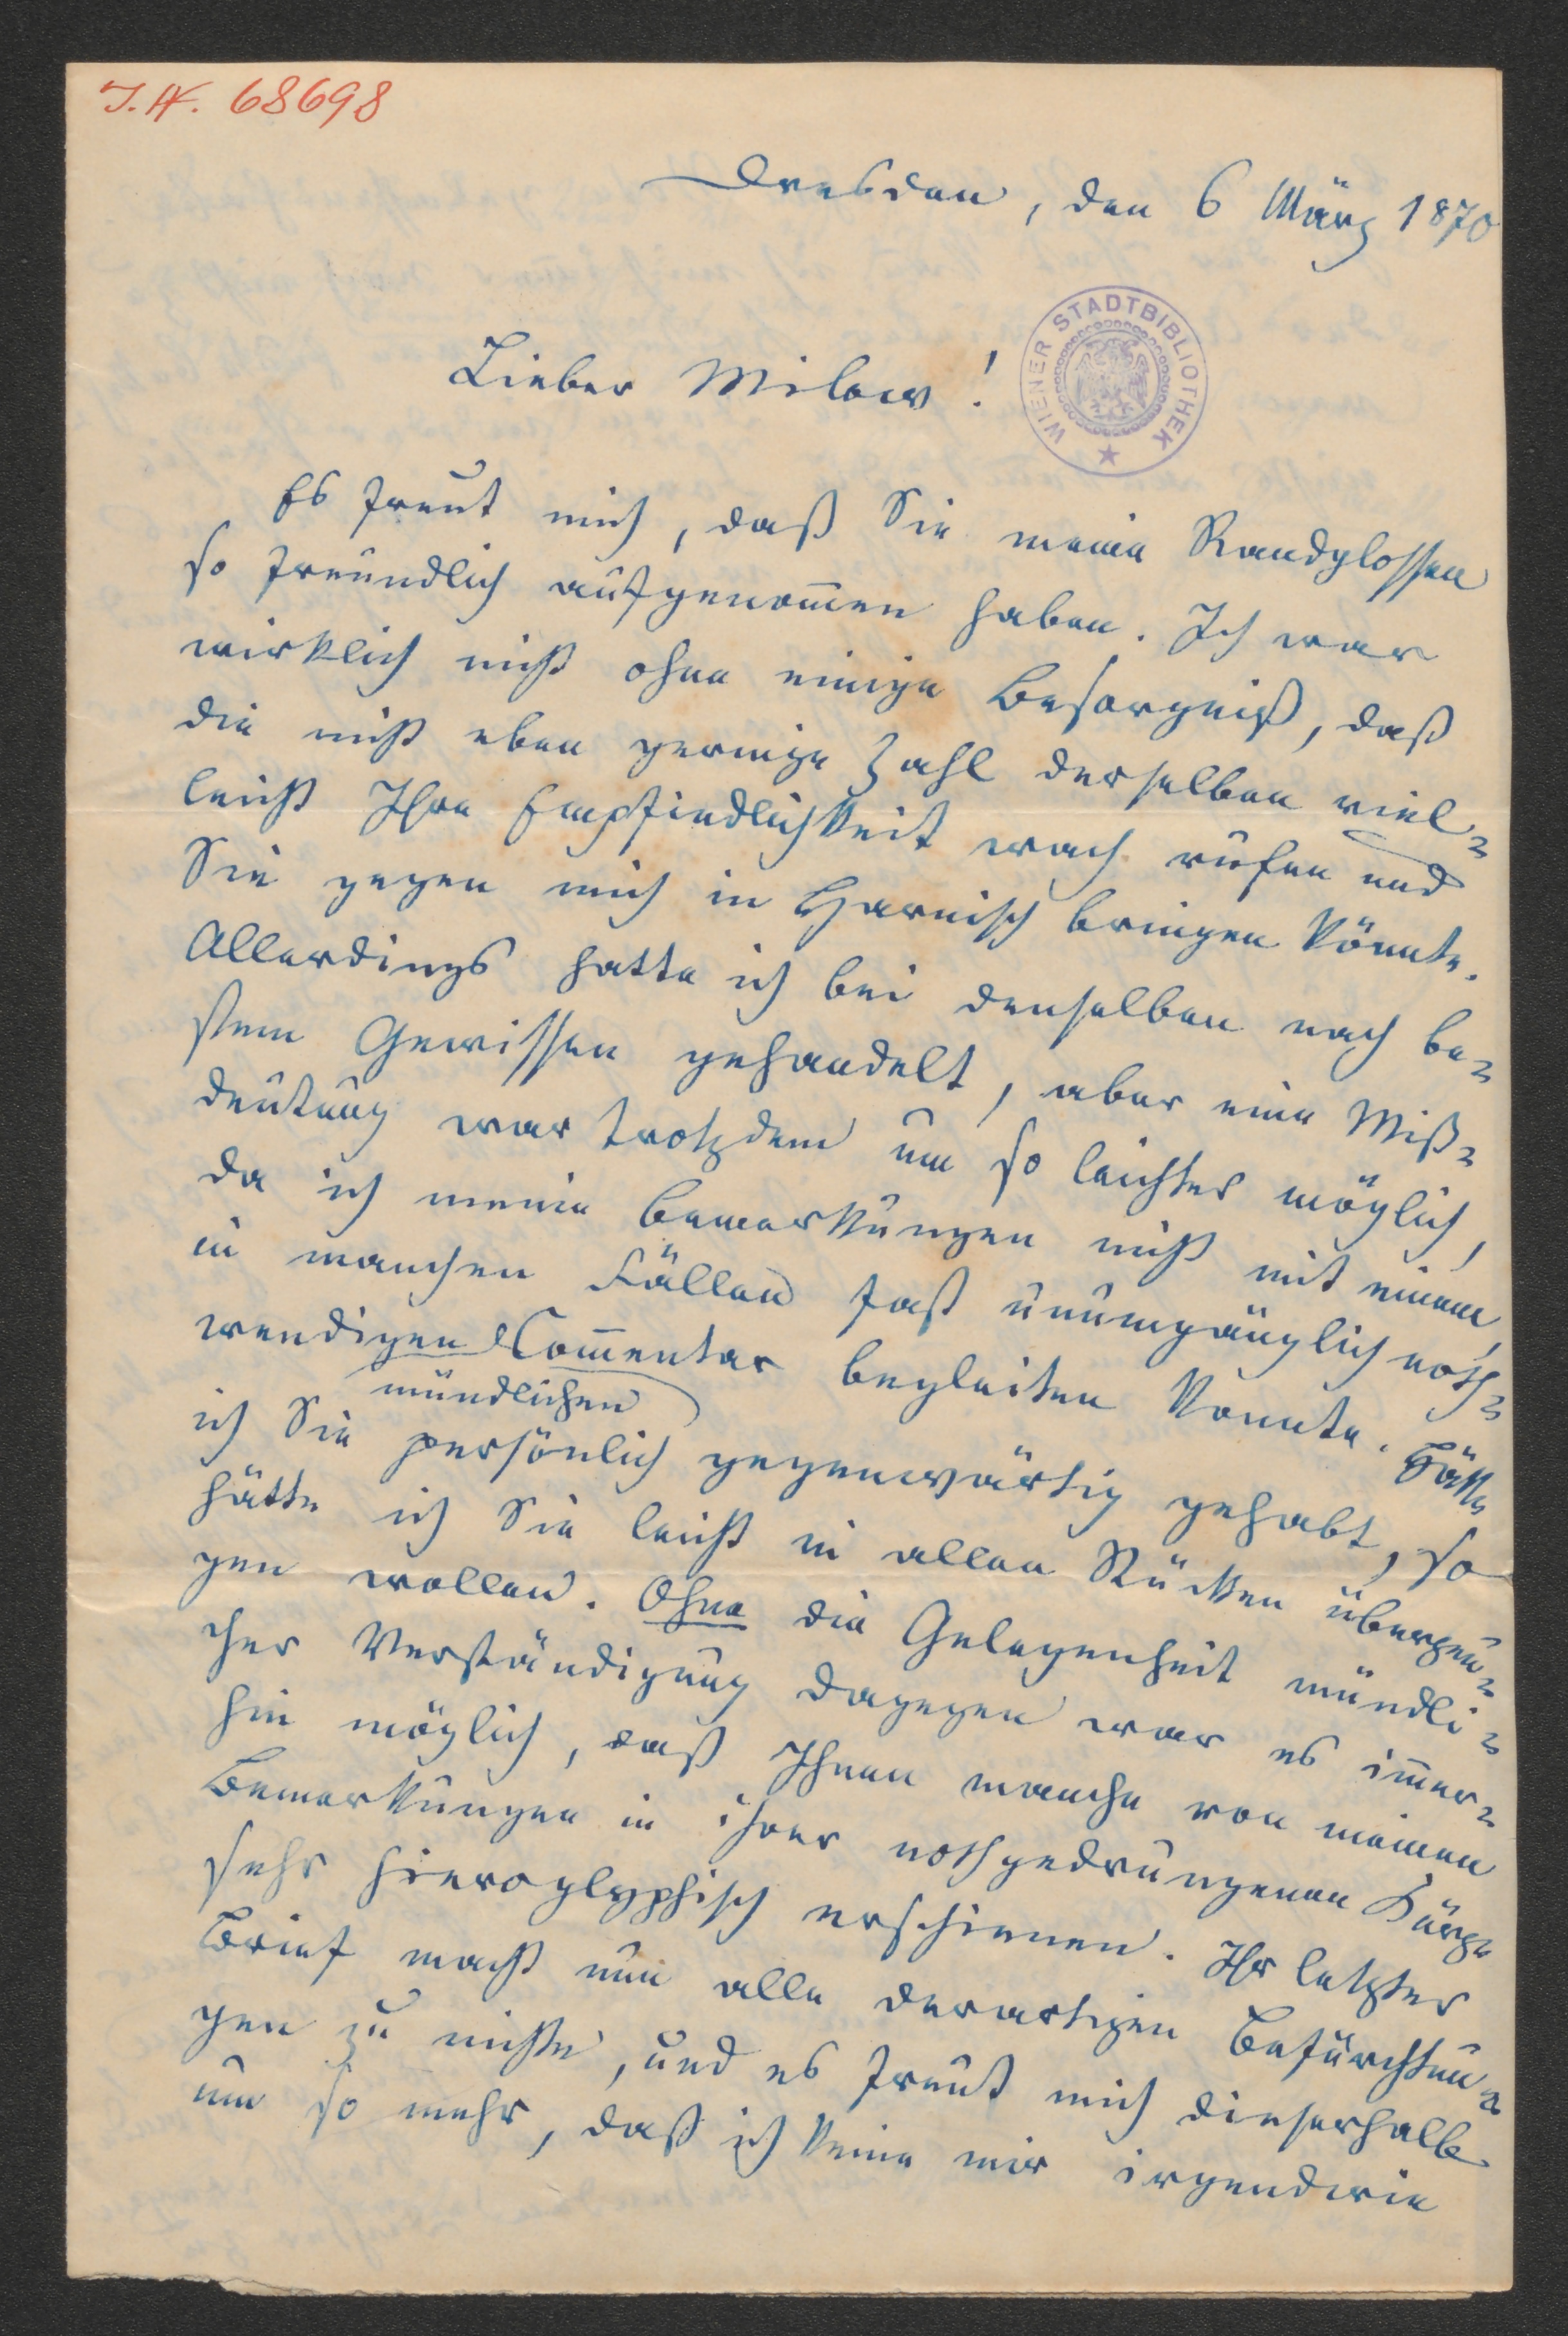 J.N. 68698
Dresden, den 6 März 1870
WIENER STADTBIBLIOTHEK
Lieber Milow!
Es freut mich, daß Sie meine Randglossen
so freundlich aufgenom̅en haben. Ich war
wirklich nicht ohne einige Besorgniß, daß
die nicht eben geringe Zahl derselben viel-
leicht Ihre Empfindlichkeit wach rufen und
Sie gegen mich in Harnisch bringen könnte.
Allerdings hatte ich bei denselben nach be-
stem Gewissen gehandelt, aber eine Miß-
deutung war trotzdem um so leichter möglich,
da ich meine Bemerkungen nicht mit einem,
in manchen Fällen fast unumgänglich noth-
wendigen Com̅entar begleiten konnte. Hätte
mündlichen
ich Sie persönlich gegenwärtig gehabt, so
hätte ich Sie leicht in allen Stücken überzeu-
gen wollen. Ohne die Gelegenheit mündli-
cher Verständigung dagegen war es im̅er-
hin möglich, daß Ihnen manche von meinen
Bemerkungen in ihrer nothgedrungenen Kürze
sehr hieroglyphisch erschienen. Ihr letzter
Brief macht nun alle derartigen Befürchtun-
gen zu nichte, und es freut mich dieserhalb
um so mehr, daß ich keine mir irgendwie